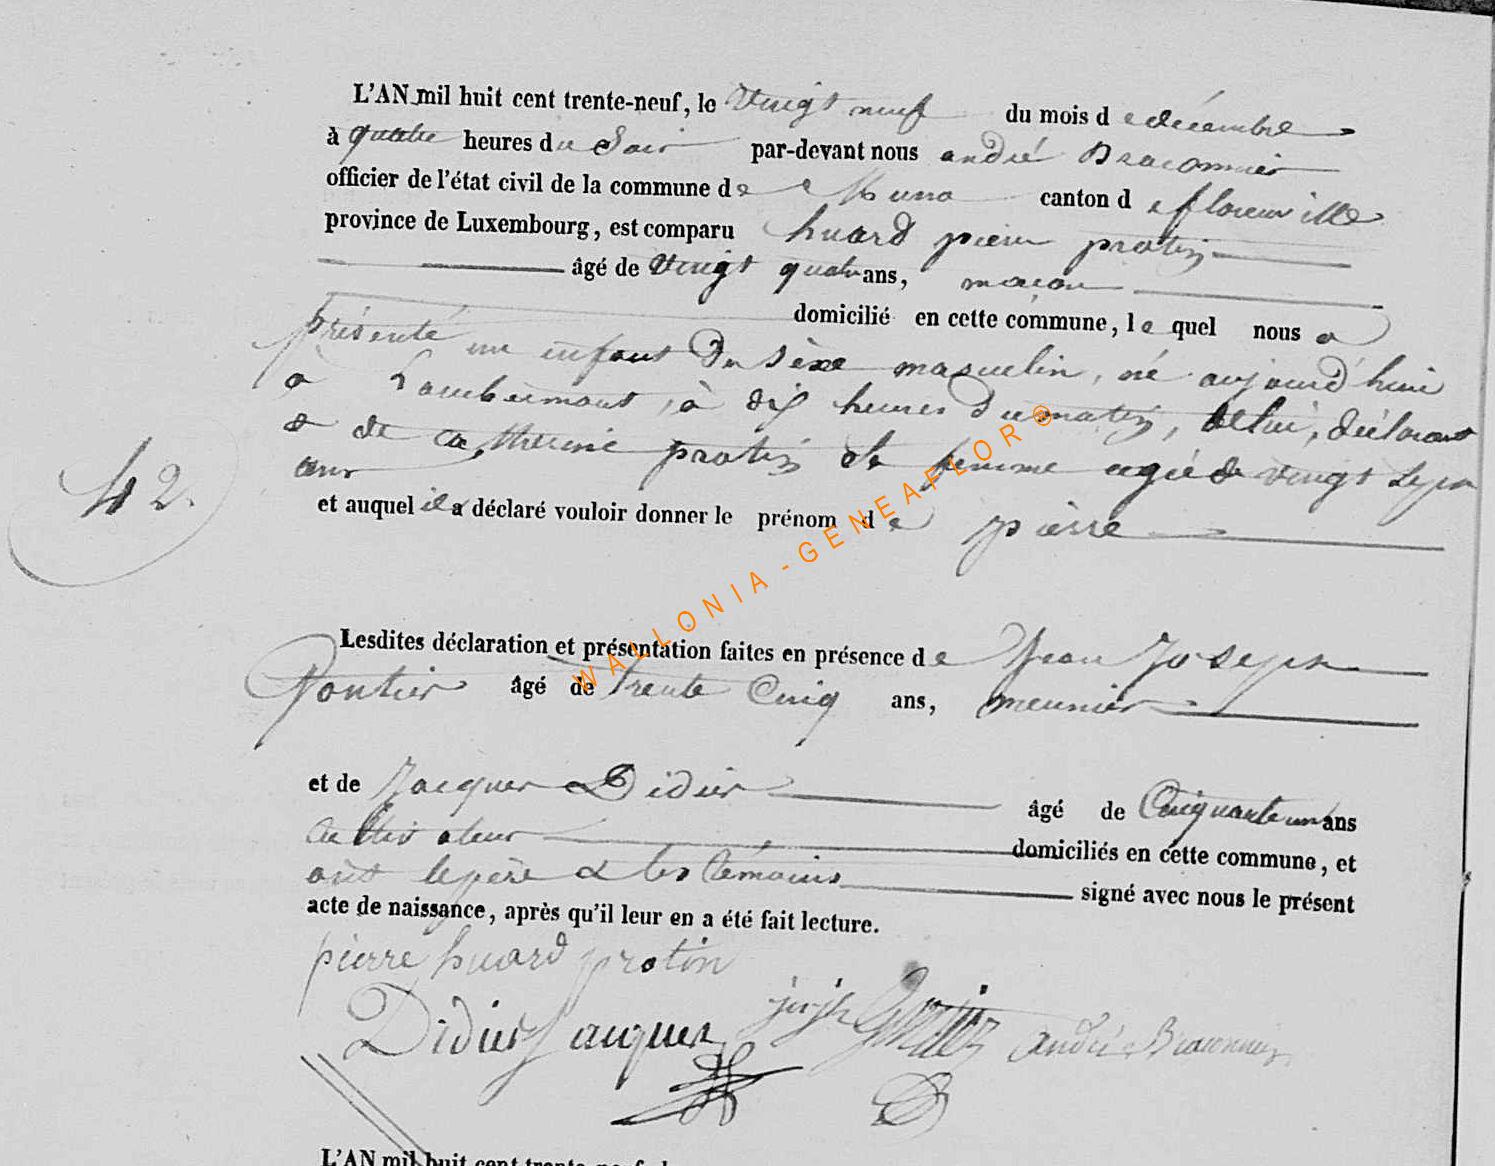 L'AN mil huit cent trente-neuf, le Vingt neuf du mois de décembre
à quatre heures du Soir par-devant nous andré Braconnier
officier de l'état civil de la commune de Muno canton de florenville
province de Luxembourg, est comparu huard pierre protin
âgé de vingt quatre ans, maçon
domicilié en cette commune, lequel nous a
présenté un enfant du sèxe masculin, né aujourd'hui
a Lambermont, à dix heures du matin, de lui, déclarant
& de catherine protin sa femme agée de vingt sept
ans
42.
et auquel il a déclaré vouloir donner le prénom de pierre
Lesdites déclaration et présentation faites en présence de Jean Joseph
Pontier âgé de trente Cinq ans, meunier
et de Jacques Didier âgé de Cinquante un ans
cultivateur domiciliés en cette commune, et
ont le père & les témoins signé avec nous le présent
acte de naissance, après qu'il leur en a été fait lecture.
pierre huard protin
Didier Jacques andré Braconnier
L'AN mil huit cent trente-neuf, le
WALLONIA-GENEAFLOR®